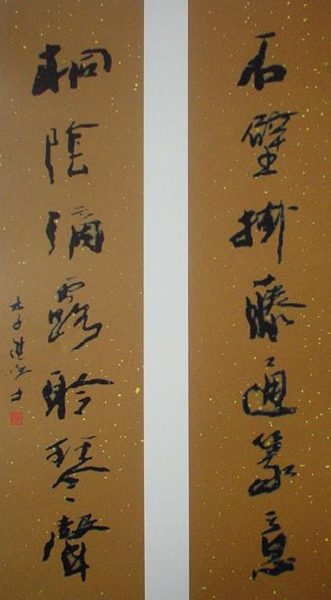 石壁掛藤通篆意
桐陰滴露聆琴聲